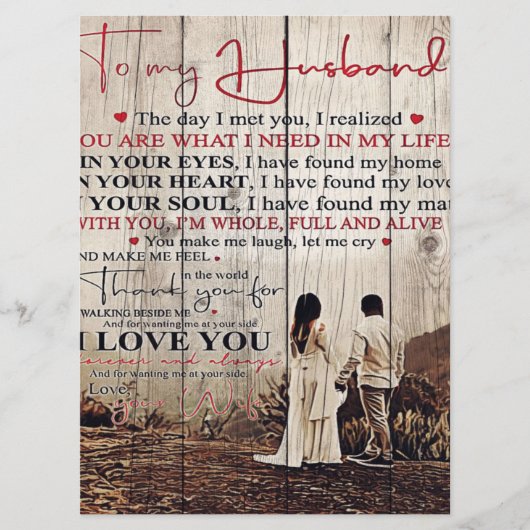 To my Husband
The day I met you, I realized
YOU ARE WHAT I NEED IN MY LIFE
IN YOUR EYES, I have found my home
N YOUR HEART, I have found my love
YOUR SOUL, I have found my mat
WITH YOU, I'M WHOLE, FULL AND ALIVE
You make me laugh, let me cry
ND MAKE ME FEEL
in the world
Thank you for
WALKING BESIDE ME
And for wanting me at your side.
I LOVE YOU
forever and always
And for wanting me at your side.
Love,
your Wife